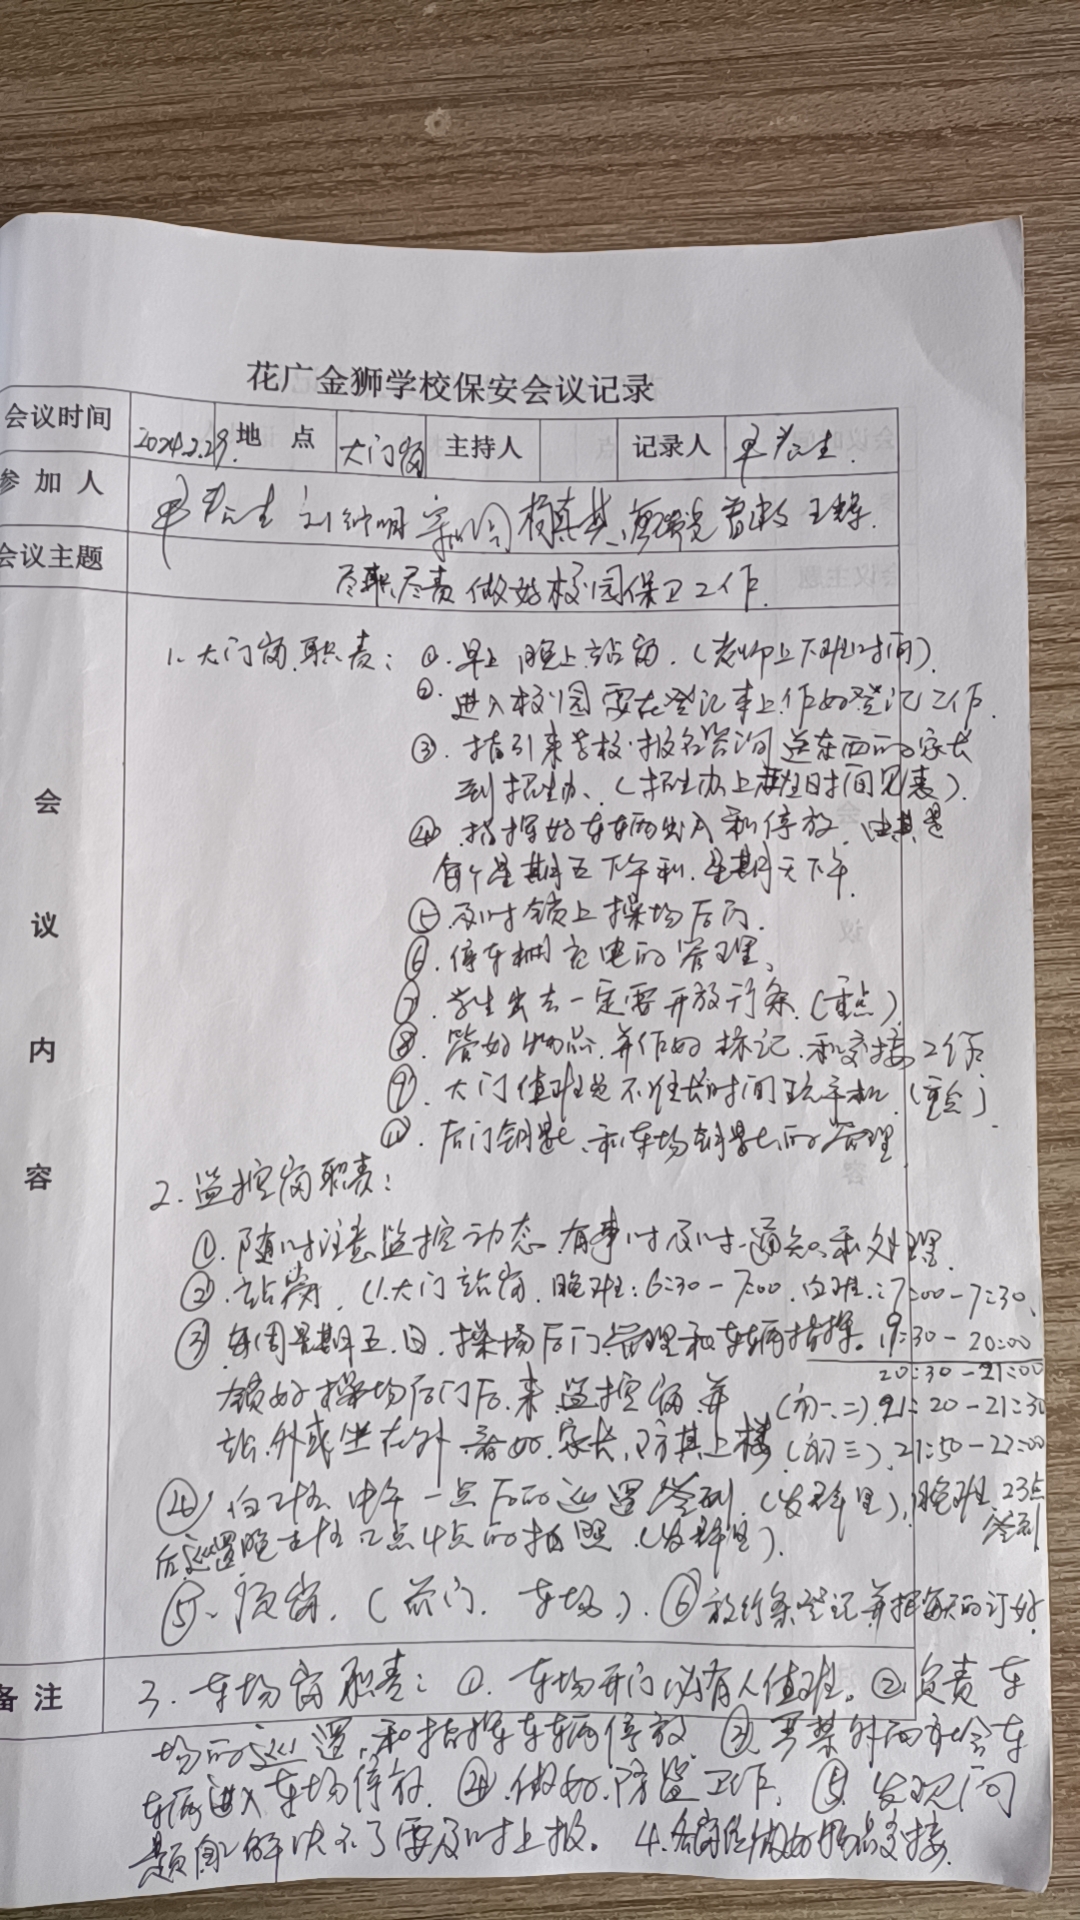 花广金狮学校保安会议记录
会议时间 2024.2.29. 地点 大门岗 主持人 记录人
参加人
会议主题 尽职尽责做好校园保卫工作.
会议内容
1、大门岗职责：①.早上 晚上站岗.（老师上下班时间）.
②.进入校园要在登记本上作好登记工作.
③.指引来学校报名咨询 送东西的家长
到招生办、（招生办上班时间见表）.
④.指挥好车辆出入和停放、由其是
每个星期五下午和.星期天下午.
⑤及时锁上操场后门.
⑥.停车棚充电的管理、
⑦.学生出去一定要开放行条.（重点）
⑧.管好物品.并作好标记.和交接工作
⑨.大门值班 不 长时间玩手机.（重点）
后门钥匙、和车场钥匙的管理
2.监控岗职责：
①.随时注意监控动态.有事时及时通知和处理.
②.站岗.（1.大门站岗.晚班：6:30－7:00.白班：7:00－7:30、
③每周星期五.日.操场后门管理和车辆指挥。19:30－20:00
20:30－21:00
锁好操场后门后.来监控岗并（初一、二）.21:20－21:30
站外或坐在外 看好家长,防其上楼（初三）.21:50－22:00
④.白班.中午一点后的巡逻签到.（发群里）,晚班.23点
后巡逻 2点4点的拍照.（发群里）. 签到
⑤、顶岗.（前门.车场）.⑥放行条登记并把每天的订好.
备注 3.车场岗职责：①.车场开门必有人值班。②.负责车
场的巡逻,和指挥车辆停放 ③.严禁外面社会车
车辆进入车场停放.④.做好防 工作.⑤.发现问
题 解决不了要及时上报。4.各岗位做好物品交接.